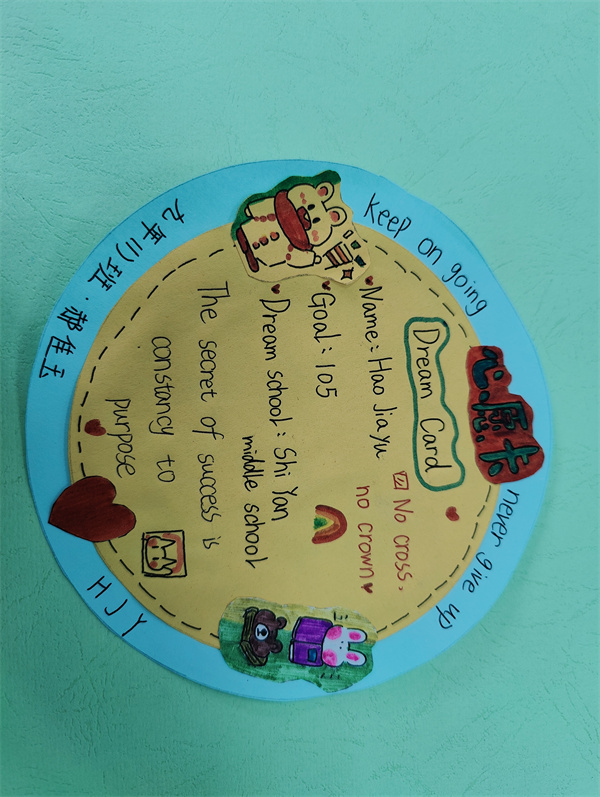 心愿卡
Keep on going
never give up
Dream Card
No cross,
no crown
Name: Hao Jia yu
Goal: 105
Dream school: Shi Yan
middle school
The secret of success is
constancy to
purpose
九年二班·郝佳玉
HJY